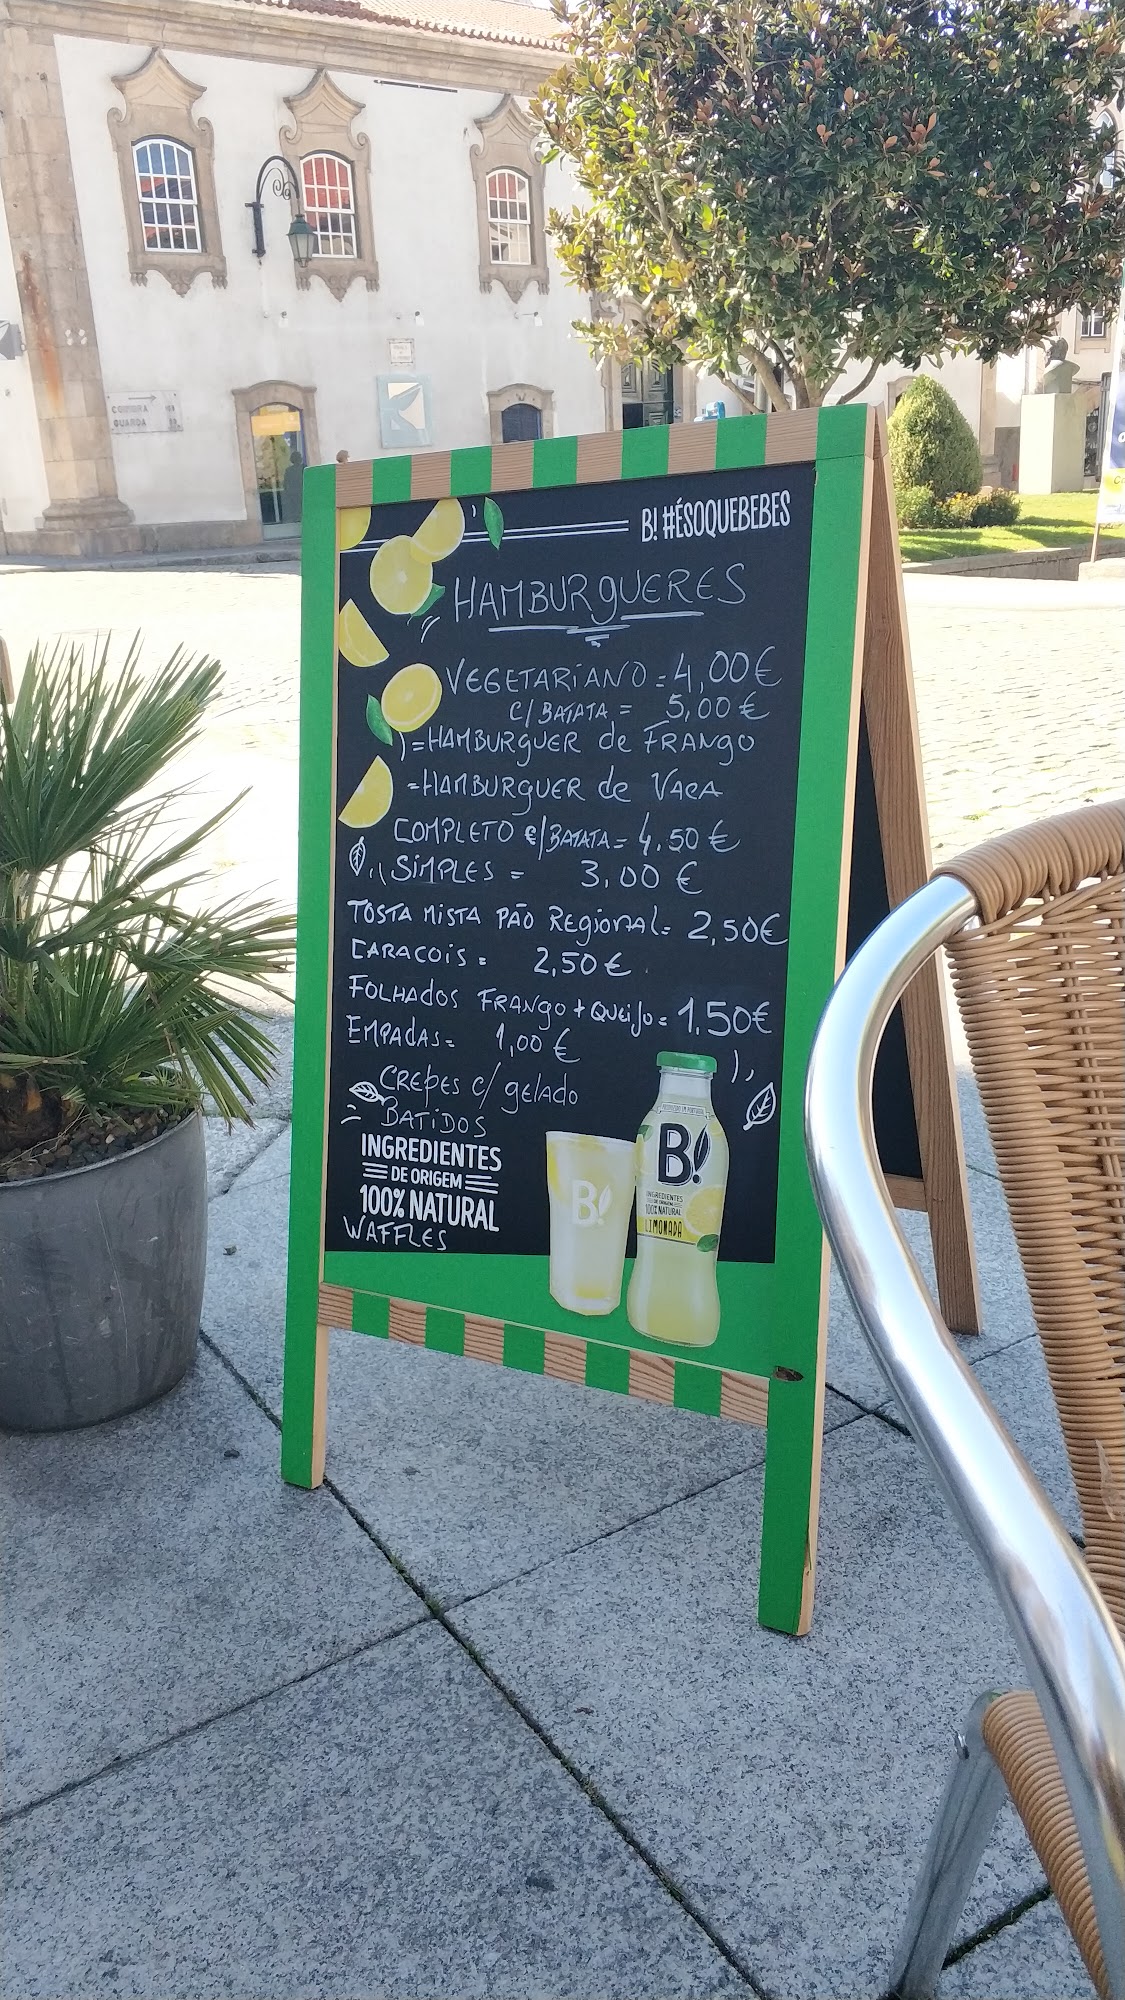 COIMBRA
GUARDA
B! #ÉSOQUEBEBES
HAMBURGUERES
VEGETARIANO = 4,00€
C/ BATATA = 5,00€
=HAMBURGUER de FRANGO
=HAMBURGUER de VACA
COMPLETO C/BATATA = 4,50€
SIMPLES = 3,00€
TOSTA MISTA PÃO REGIONAL = 2,50€
CARACOIS = 2,50€
FOLHADOS FRANGO + QUEIJO = 1,50€
EMPADAS = 1,00€
CREPES C/ gelado
BATIDOS
INGREDIENTES
DE ORIGEM
100% NATURAL
WAFFLES
B!
B!
INGREDIENTES
DE ORIGEM
100% NATURAL
LIMONADA